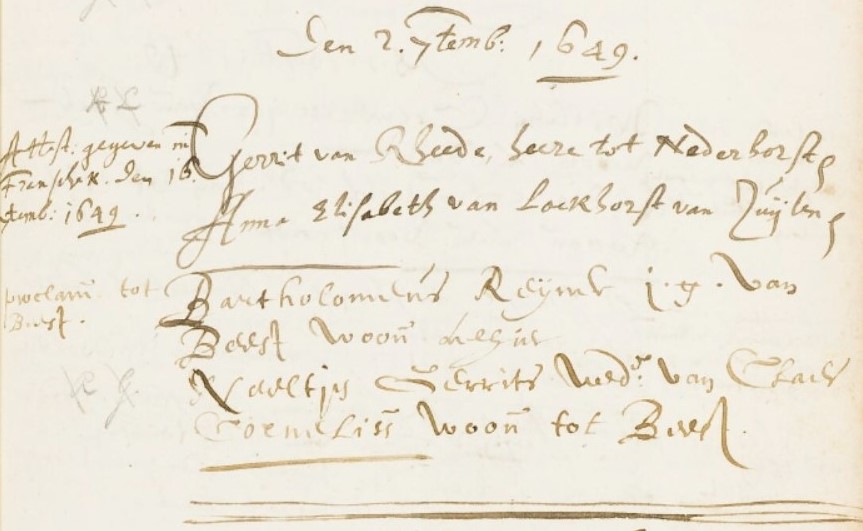 Den 2. 7temb: 1649.
Attest: gegeven in
Franschen. den 18.
7temb: 1649.
Gerrit van Rheede, heere tot Nederhorst,
Anna Elisabeth van Lockhorst van Zuijlen,
proclam̄ tot
Beest.
Bartholomeus Reijners j.g. van
Beest woon̄ alhier
Neeltjes Gerrits wede. van Claes
Corneliss̄ woon̄ tot Beest.